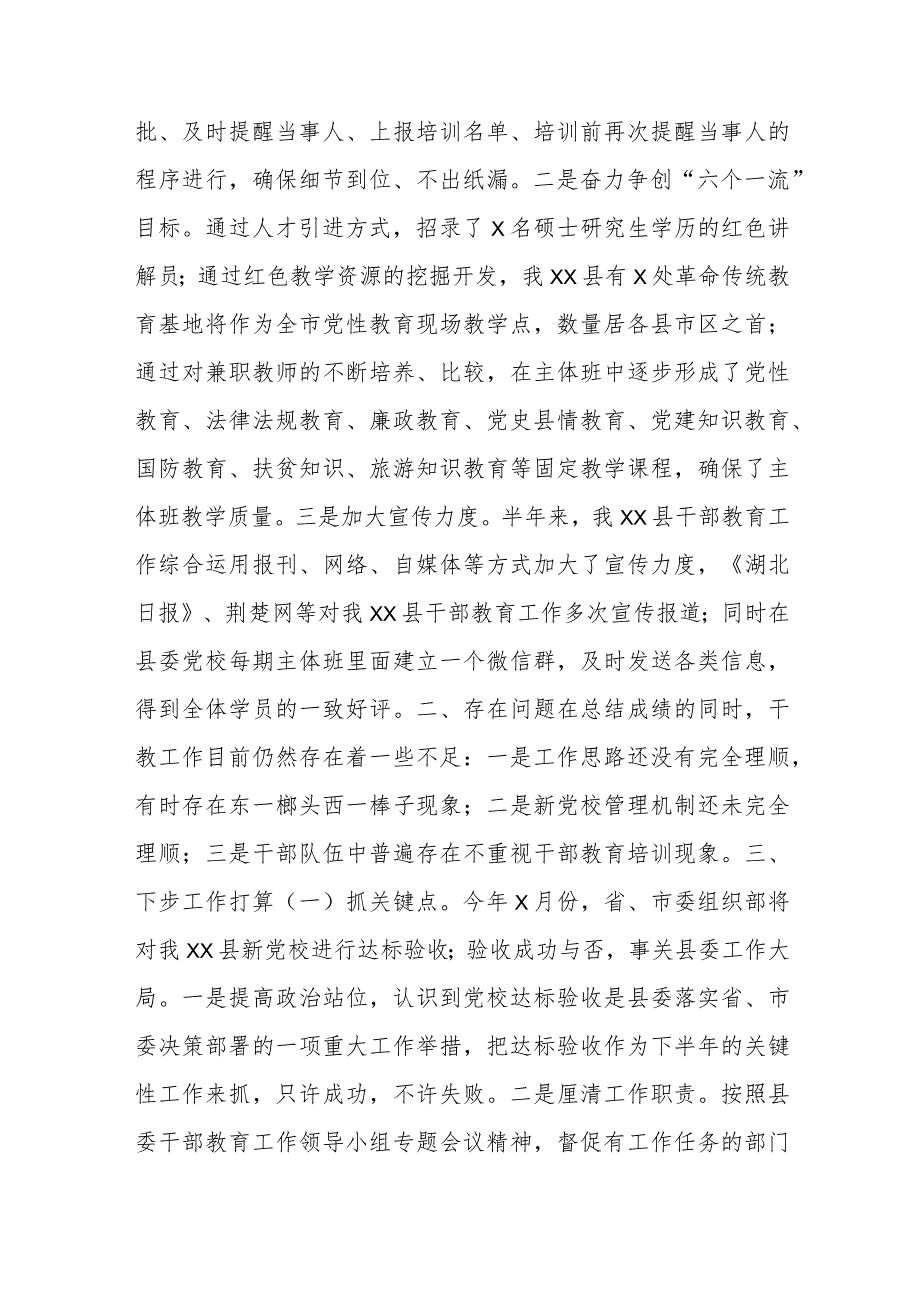 批、及时提醒当事人、上报培训名单、培训前再次提醒当事人的
程序进行，确保细节到位、不出纸漏。二是奋力争创“六个一流”
目标。通过人才引进方式，招录了 X 名硕士研究生学历的红色讲
解员；通过红色教学资源的挖掘开发，我 XX 县有 X 处革命传统教
育基地将作为全市党性教育现场教学点，数量居各县市区之首；
通过对兼职教师的不断培养、比较，在主体班中逐步形成了党性
教育、法律法规教育、廉政教育、党史县情教育、党建知识教育、
国防教育、扶贫知识、旅游知识教育等固定教学课程，确保了主
体班教学质量。三是加大宣传力度。半年来，我 XX 县干部教育工
作综合运用报刊、网络、自媒体等方式加大了宣传力度，《湖北
日报》、荆楚网等对我 XX 县干部教育工作多次宣传报道；同时在
县委党校每期主体班里面建立一个微信群，及时发送各类信息，
得到全体学员的一致好评。二、存在问题在总结成绩的同时，干
教工作目前仍然存在着一些不足：一是工作思路还没有完全理顺，
有时存在东一榔头西一棒子现象；二是新党校管理机制还未完全
理顺；三是干部队伍中普遍存在不重视干部教育培训现象。三、
下步工作打算（一）抓关键点。今年 X 月份，省、市委组织部将
对我 XX 县新党校进行达标验收；验收成功与否，事关县委工作大
局。一是提高政治站位，认识到党校达标验收是县委落实省、市
委决策部署的一项重大工作举措，把达标验收作为下半年的关键
性工作来抓，只许成功，不许失败。二是厘清工作职责。按照县
委干部教育工作领导小组专题会议精神，督促有工作任务的部门